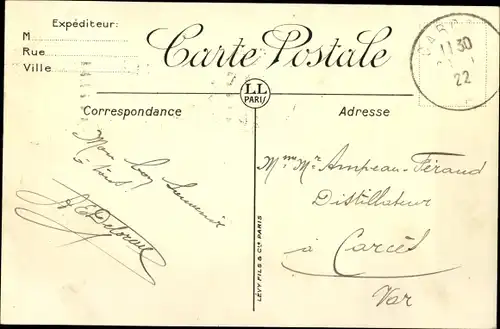 Expéditeur:
M
Rue
Ville
Carte Postale
11 30
22
LL
PARIS
Correspondance
Adresse
Mon bon Souvenir
à tous!
Mme Mr Ampeau-Féraud
Distillateur
à Carcès
Var
LÉVY FILS & Cie PARIS